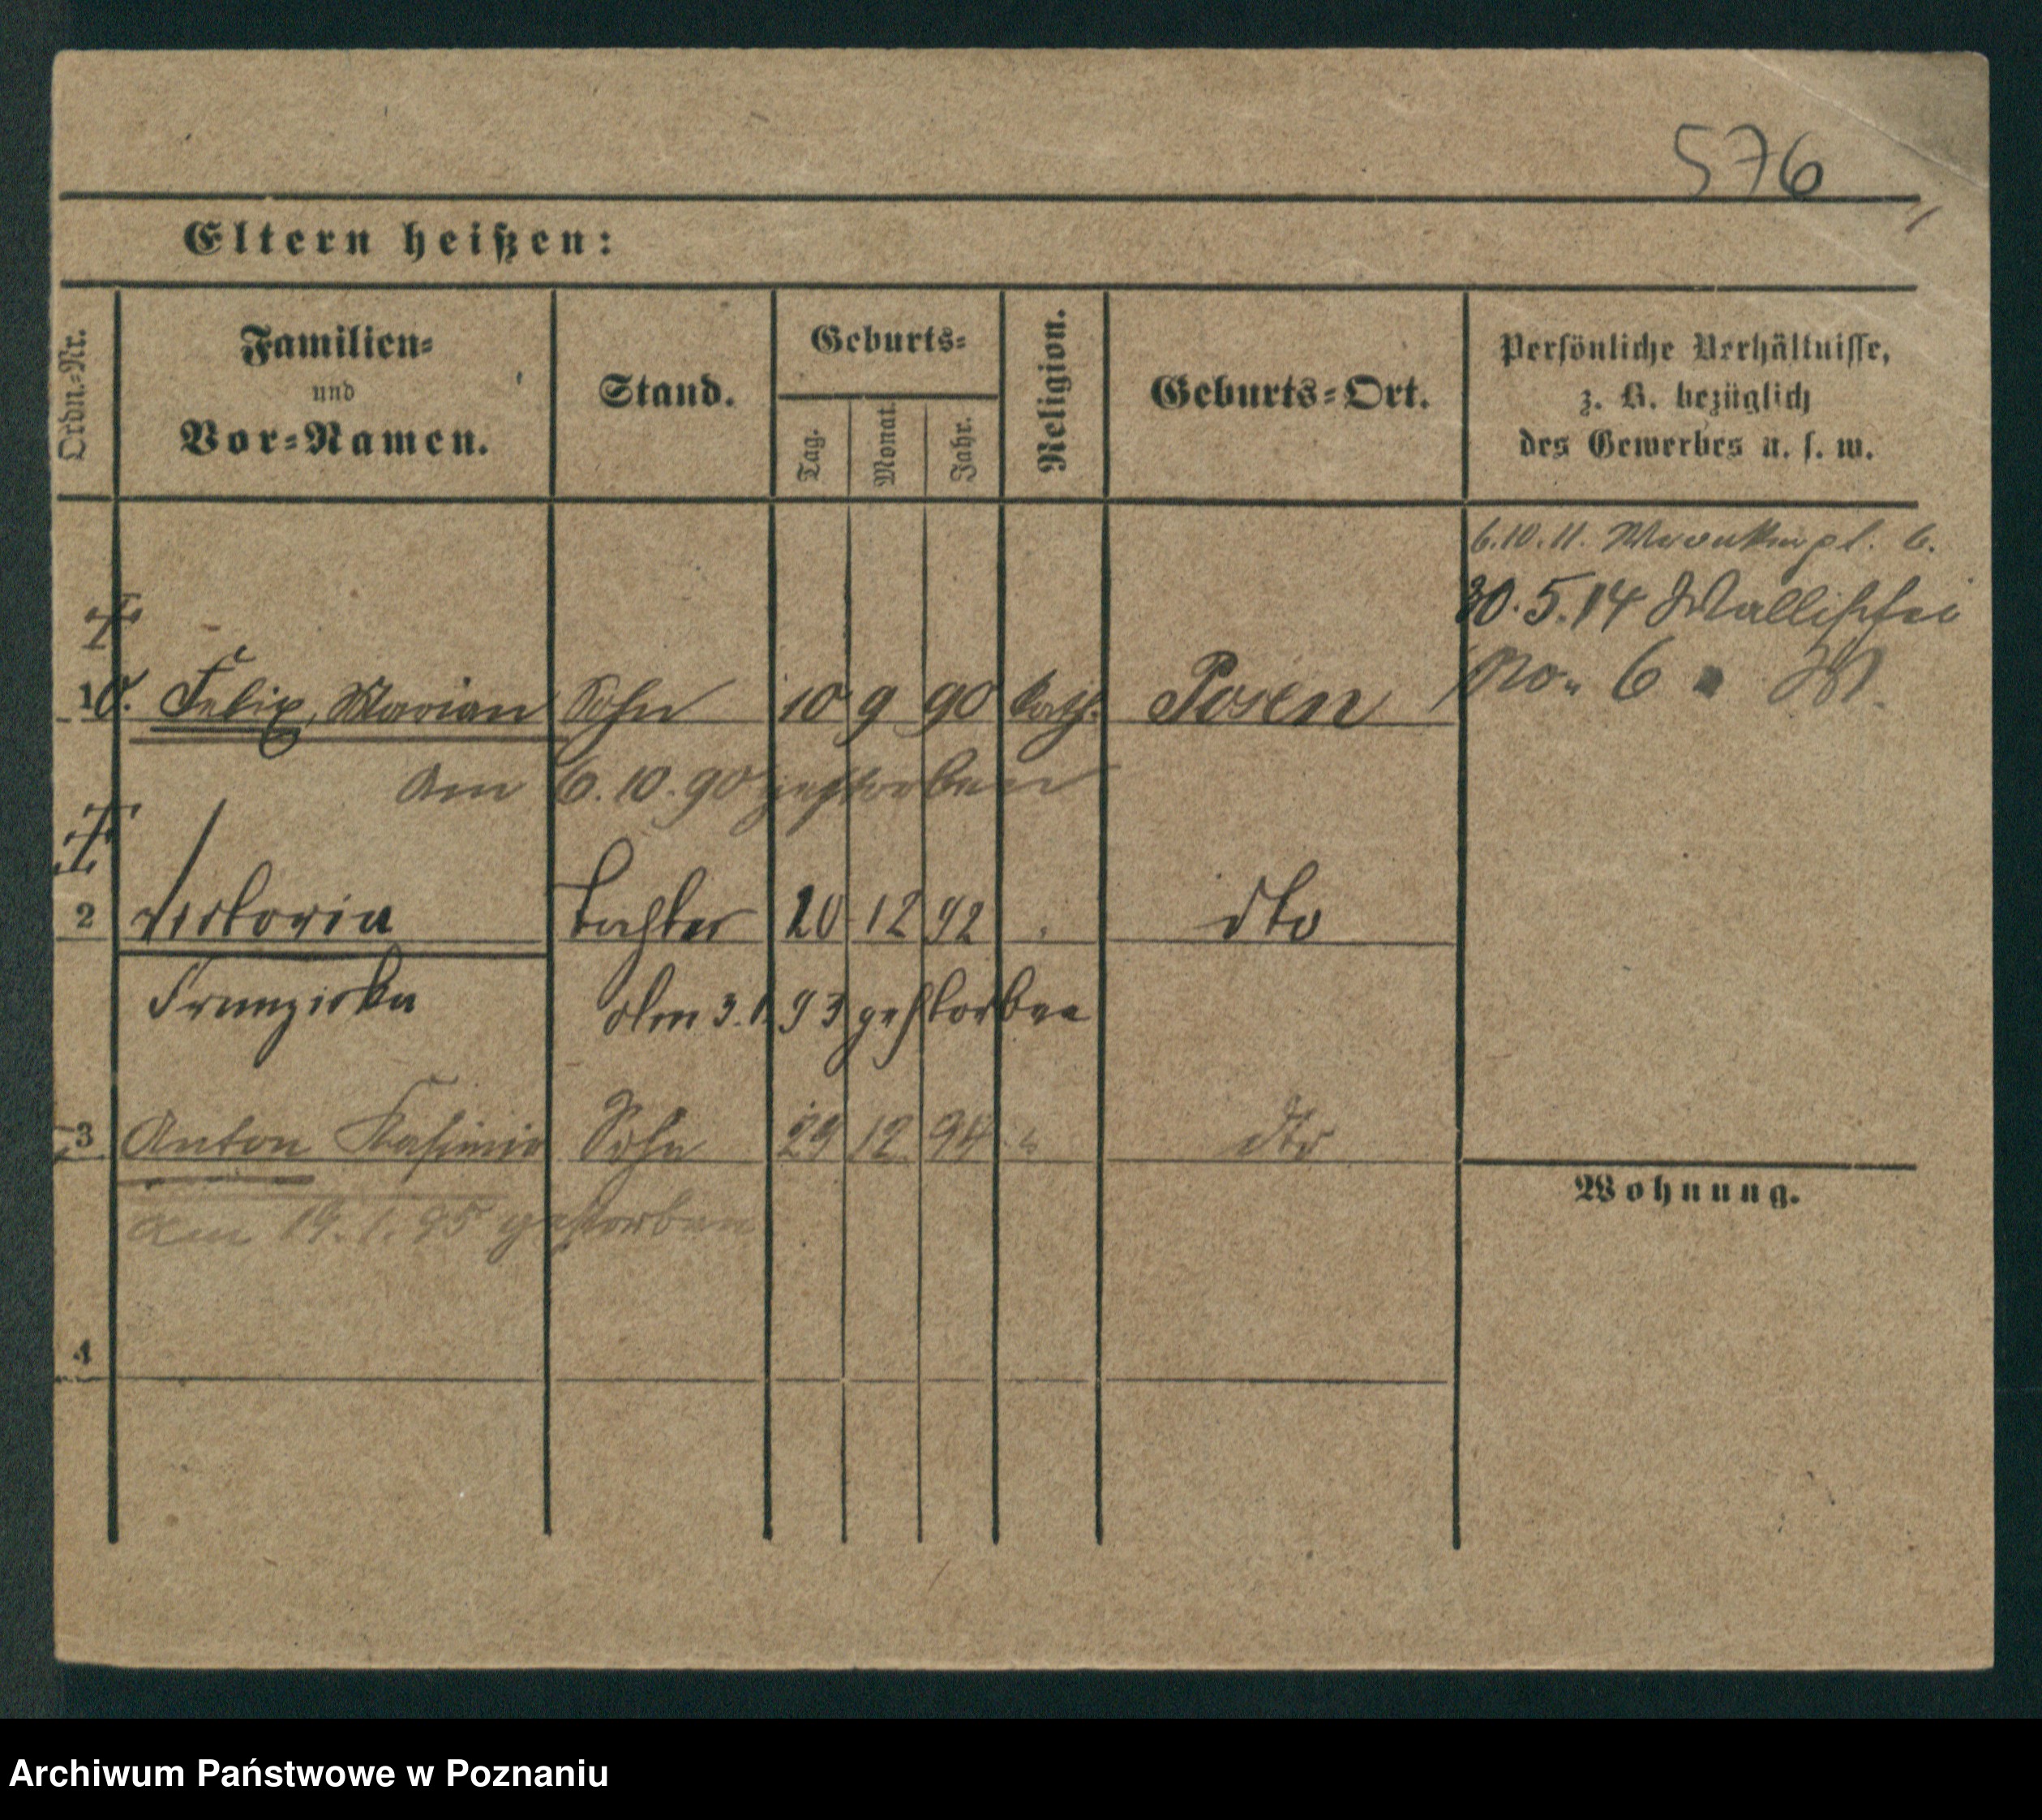 576
Eltern heißen:
Ordn.-Nr.
Familien-
und
Vor-Namen.
Stand.
Geburts-
Tag.
Monat.
Jahr.
Religion.
Geburts-Ort.
Persönliche Verhältnisse,
z. B. bezüglich
des Gewerbes u. s. w.
6.10.11. 6.
30.5.14 Wallischei
No. 6
10. Felix, Marian Sohn 10 9 90 kath. Posen
Am 6.10.90 gestorben
2 Victoria Tochter 20 12 92 dto
Franziska Am 3.1.93 gestorben
3 Anton Kasimir Sohn 29 12 94 " dto
am 19.1.95 gestorben
Wohnung.
4
Archiwum Państwowe w Poznaniu